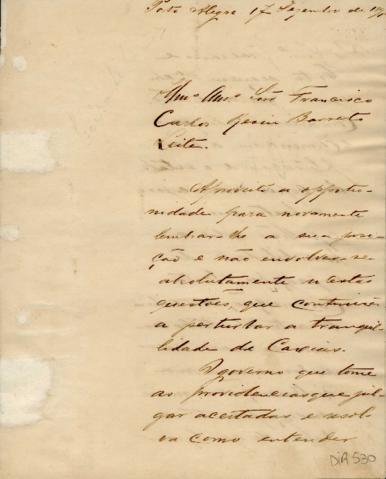 Porto Alegre 17 Dezembro de
Amº Amº Snr Francisco
Carlos Barreto
Leite.
Aproveito a opportu-
nidade para novamente
lembrar-lho a sua posi-
ção e não envolver-se
absolutamente n'estas
questões, que continúa
a perturbar a tranqui-
lidade de Caxias.
O governo que tome
as providencias que jul-
gar acertadas e resol-
va como entender
DIA 530